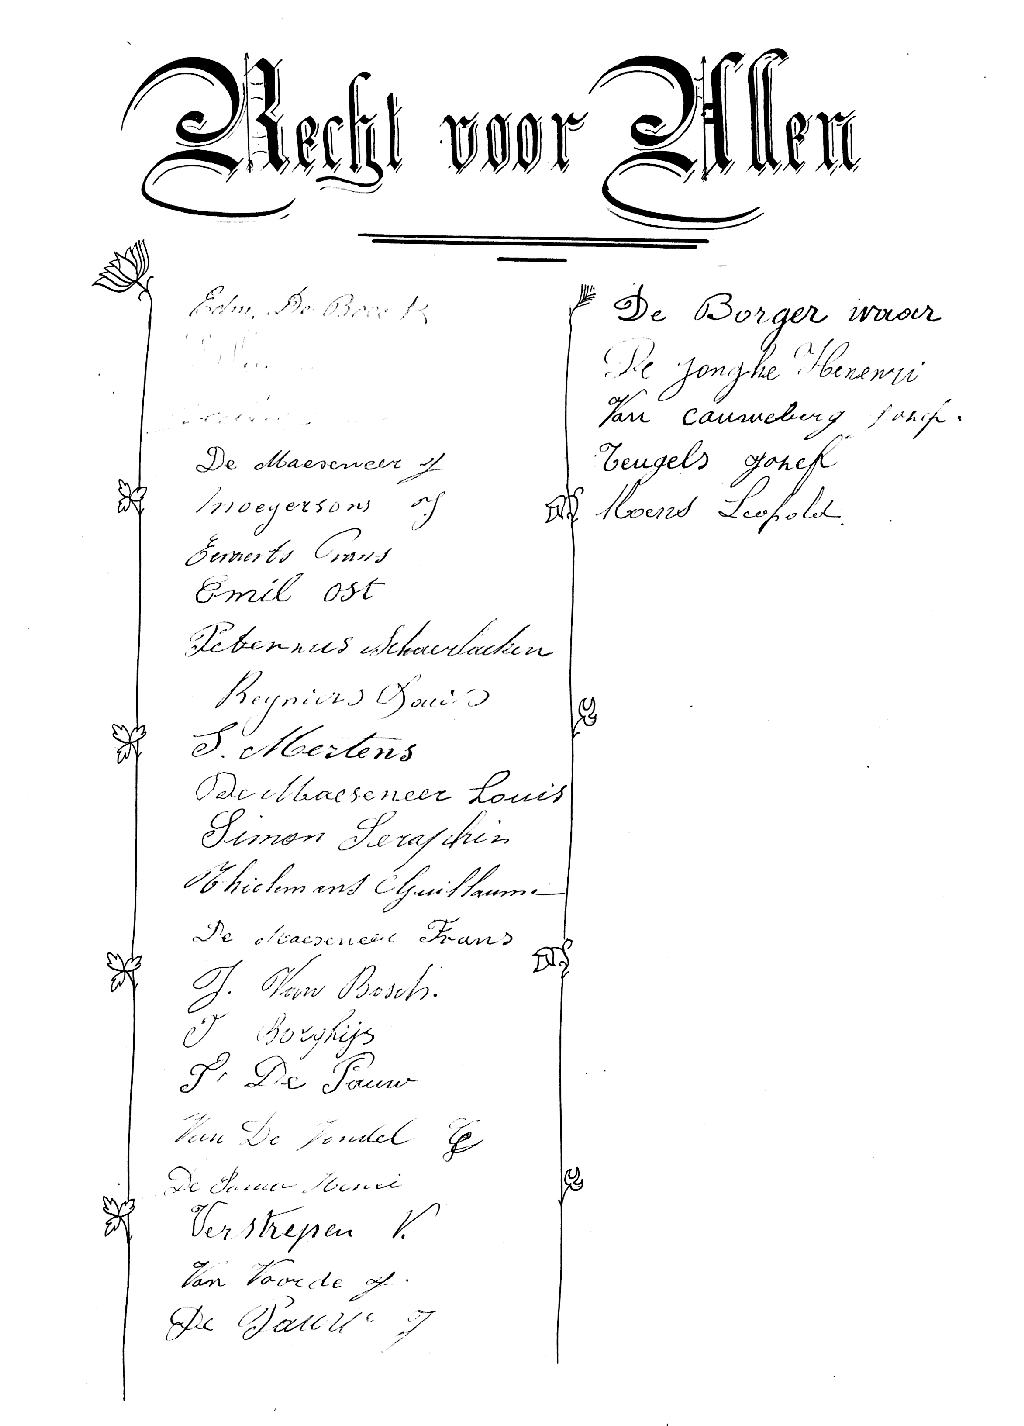 Recht voor Allen
Edm. De Boeck
De Maeseneer J
Moeyersons J
Everaerts Frans
Emil Ost
Petermus Schaerlacken
Reyniers Louis
S. Mertens
De Maeseneer Louis
Simon Seraphin
Thielemans Guillaume
De Maeseneer Frans
J. Van Bosch.
J Borghijs
P. De Pauw
Van De Vondel
De Pauw Henri
Verstrepen V.
Van Voorde J.
De Pauw J
De Borger
De Jonghe
Van Cauweberg Jozef.
Teugels Jozef
Moens Leopold